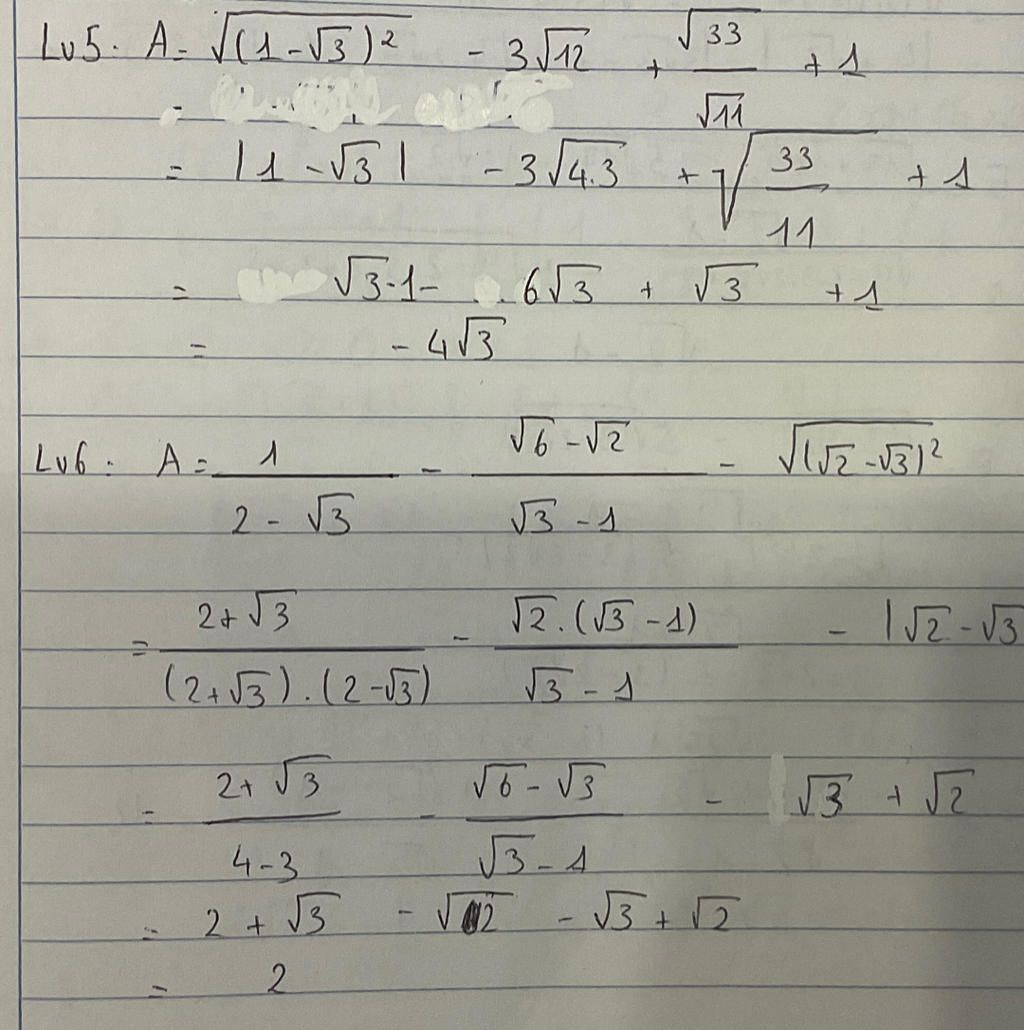 Lv5: A = √(1 - √3)² - 3√12 + √33/√11 + 1
=
= |1 - √3| - 3√4.3 + √33/11 + 1
= √3 - 1 - 6√3 + √3 + 1
= - 4√3
Lv6: A = 1/(2 - √3) - (√6 - √2)/(√3 - 1) - √(√2 - √3)²
= (2 + √3)/((2 + √3).(2 - √3)) - (√2.(√3 - 1))/(√3 - 1) - |√2 - √3
= (2 + √3)/(4 - 3) - (√6 - √3)/(√3 - 1) - √3 + √2
= 2 + √3 - √2 - √3 + √2
= 2